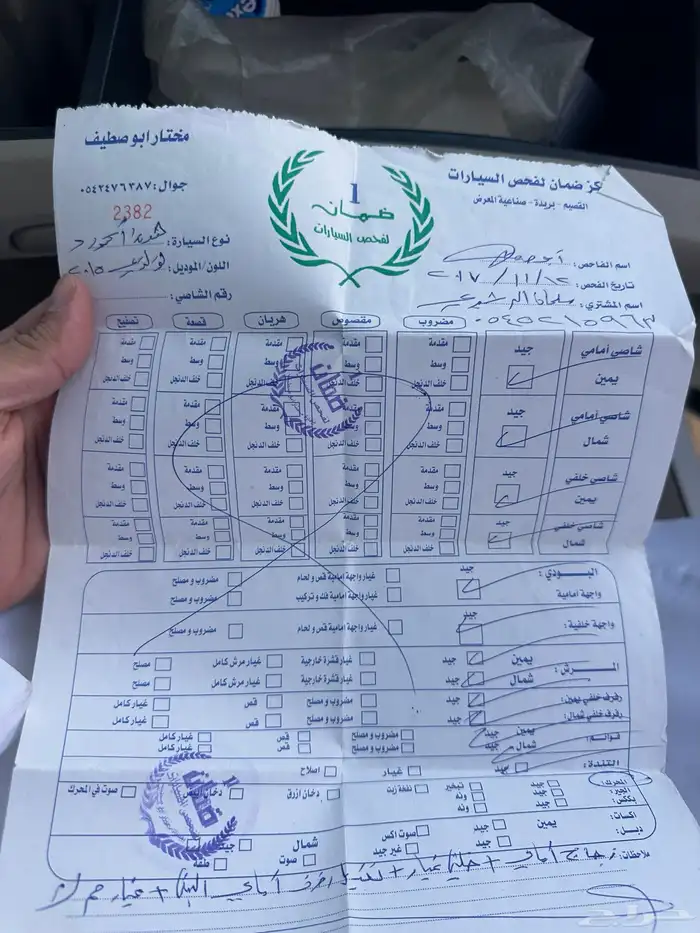 مختار ابو صطيف
جوال: ٠٥٤٢٤٧٦٣٨٧
2382
نوع السيارة: هوندا اكورد
اللون/الموديل: ٢٠١٥
رقم الشاصي:
1
ضمان
لفحص السيارات
كز ضمان لفحص السيارات
القصيم - بريدة - صناعية المعرض
اسم الفاحص:
تاريخ الفحص: ٢٠١٧/١١/١٢
اسم المشتري: سلمان
مضروب مقصوص هربان قصعة تصنيع
شاصي أمامي يمين جيد
مقدمة مقدمة مقدمة مقدمة مقدمة
وسط وسط وسط وسط وسط
خلف الدنجل خلف الدنجل خلف الدنجل خلف الدنجل خلف الدنجل
شاصي أمامي شمال جيد
مقدمة مقدمة مقدمة مقدمة
وسط وسط وسط وسط
خلف الدنجل خلف الدنجل خلف الدنجل خلف الدنجل
شاصي خلفي يمين جيد
مقدمة مقدمة مقدمة مقدمة مقدمة
وسط وسط وسط وسط وسط
خلف الدنجل خلف الدنجل خلف الدنجل خلف الدنجل خلف الدنجل
شاصي خلفي شمال جيد
مقدمة مقدمة مقدمة مقدمة مقدمة
وسط وسط وسط وسط وسط
خلف الدنجل خلف الدنجل خلف الدنجل خلف الدنجل خلف الدنجل
البودي: جيد غيار واجهة امامية قص و لحام مضروب و مصلح
واجهة امامية غيار واجهة امامية فك و تركيب مضروب و مصلح
واجهة خلفية: جيد غيار واجهة خلفية قص و لحام مضروب و مصلح
المرش: يمين جيد غيار قشرة خارجية غيار مرش كامل مصلح
شمال جيد غيار قشرة خارجية غيار مرش كامل مصلح
رفرف خلفي يمين: جيد مضروب و مصلح قص غيار كامل
رفرف خلفي شمال: جيد مضروب و مصلح قص غيار كامل
قوائم: يمين جيد مضروب و مصلح قص غيار كامل
شمال جيد مضروب و مصلح قص غيار كامل
التندة: جيد غيار اصلاح
المحرك: جيد تبخير نفخة زيت دخان ازرق دخان ابيض صوت في المحرك
الجير: جيد ونه
بكس: جيد ونه
اكسات: يمين جيد صوت اكس شمال جيد
دبل: جيد غير جيد صوت طقة
ملاحظات: زجاج أمامي + غيار + رفرف أمامي + غيار
ضمان
ضمان
حراج